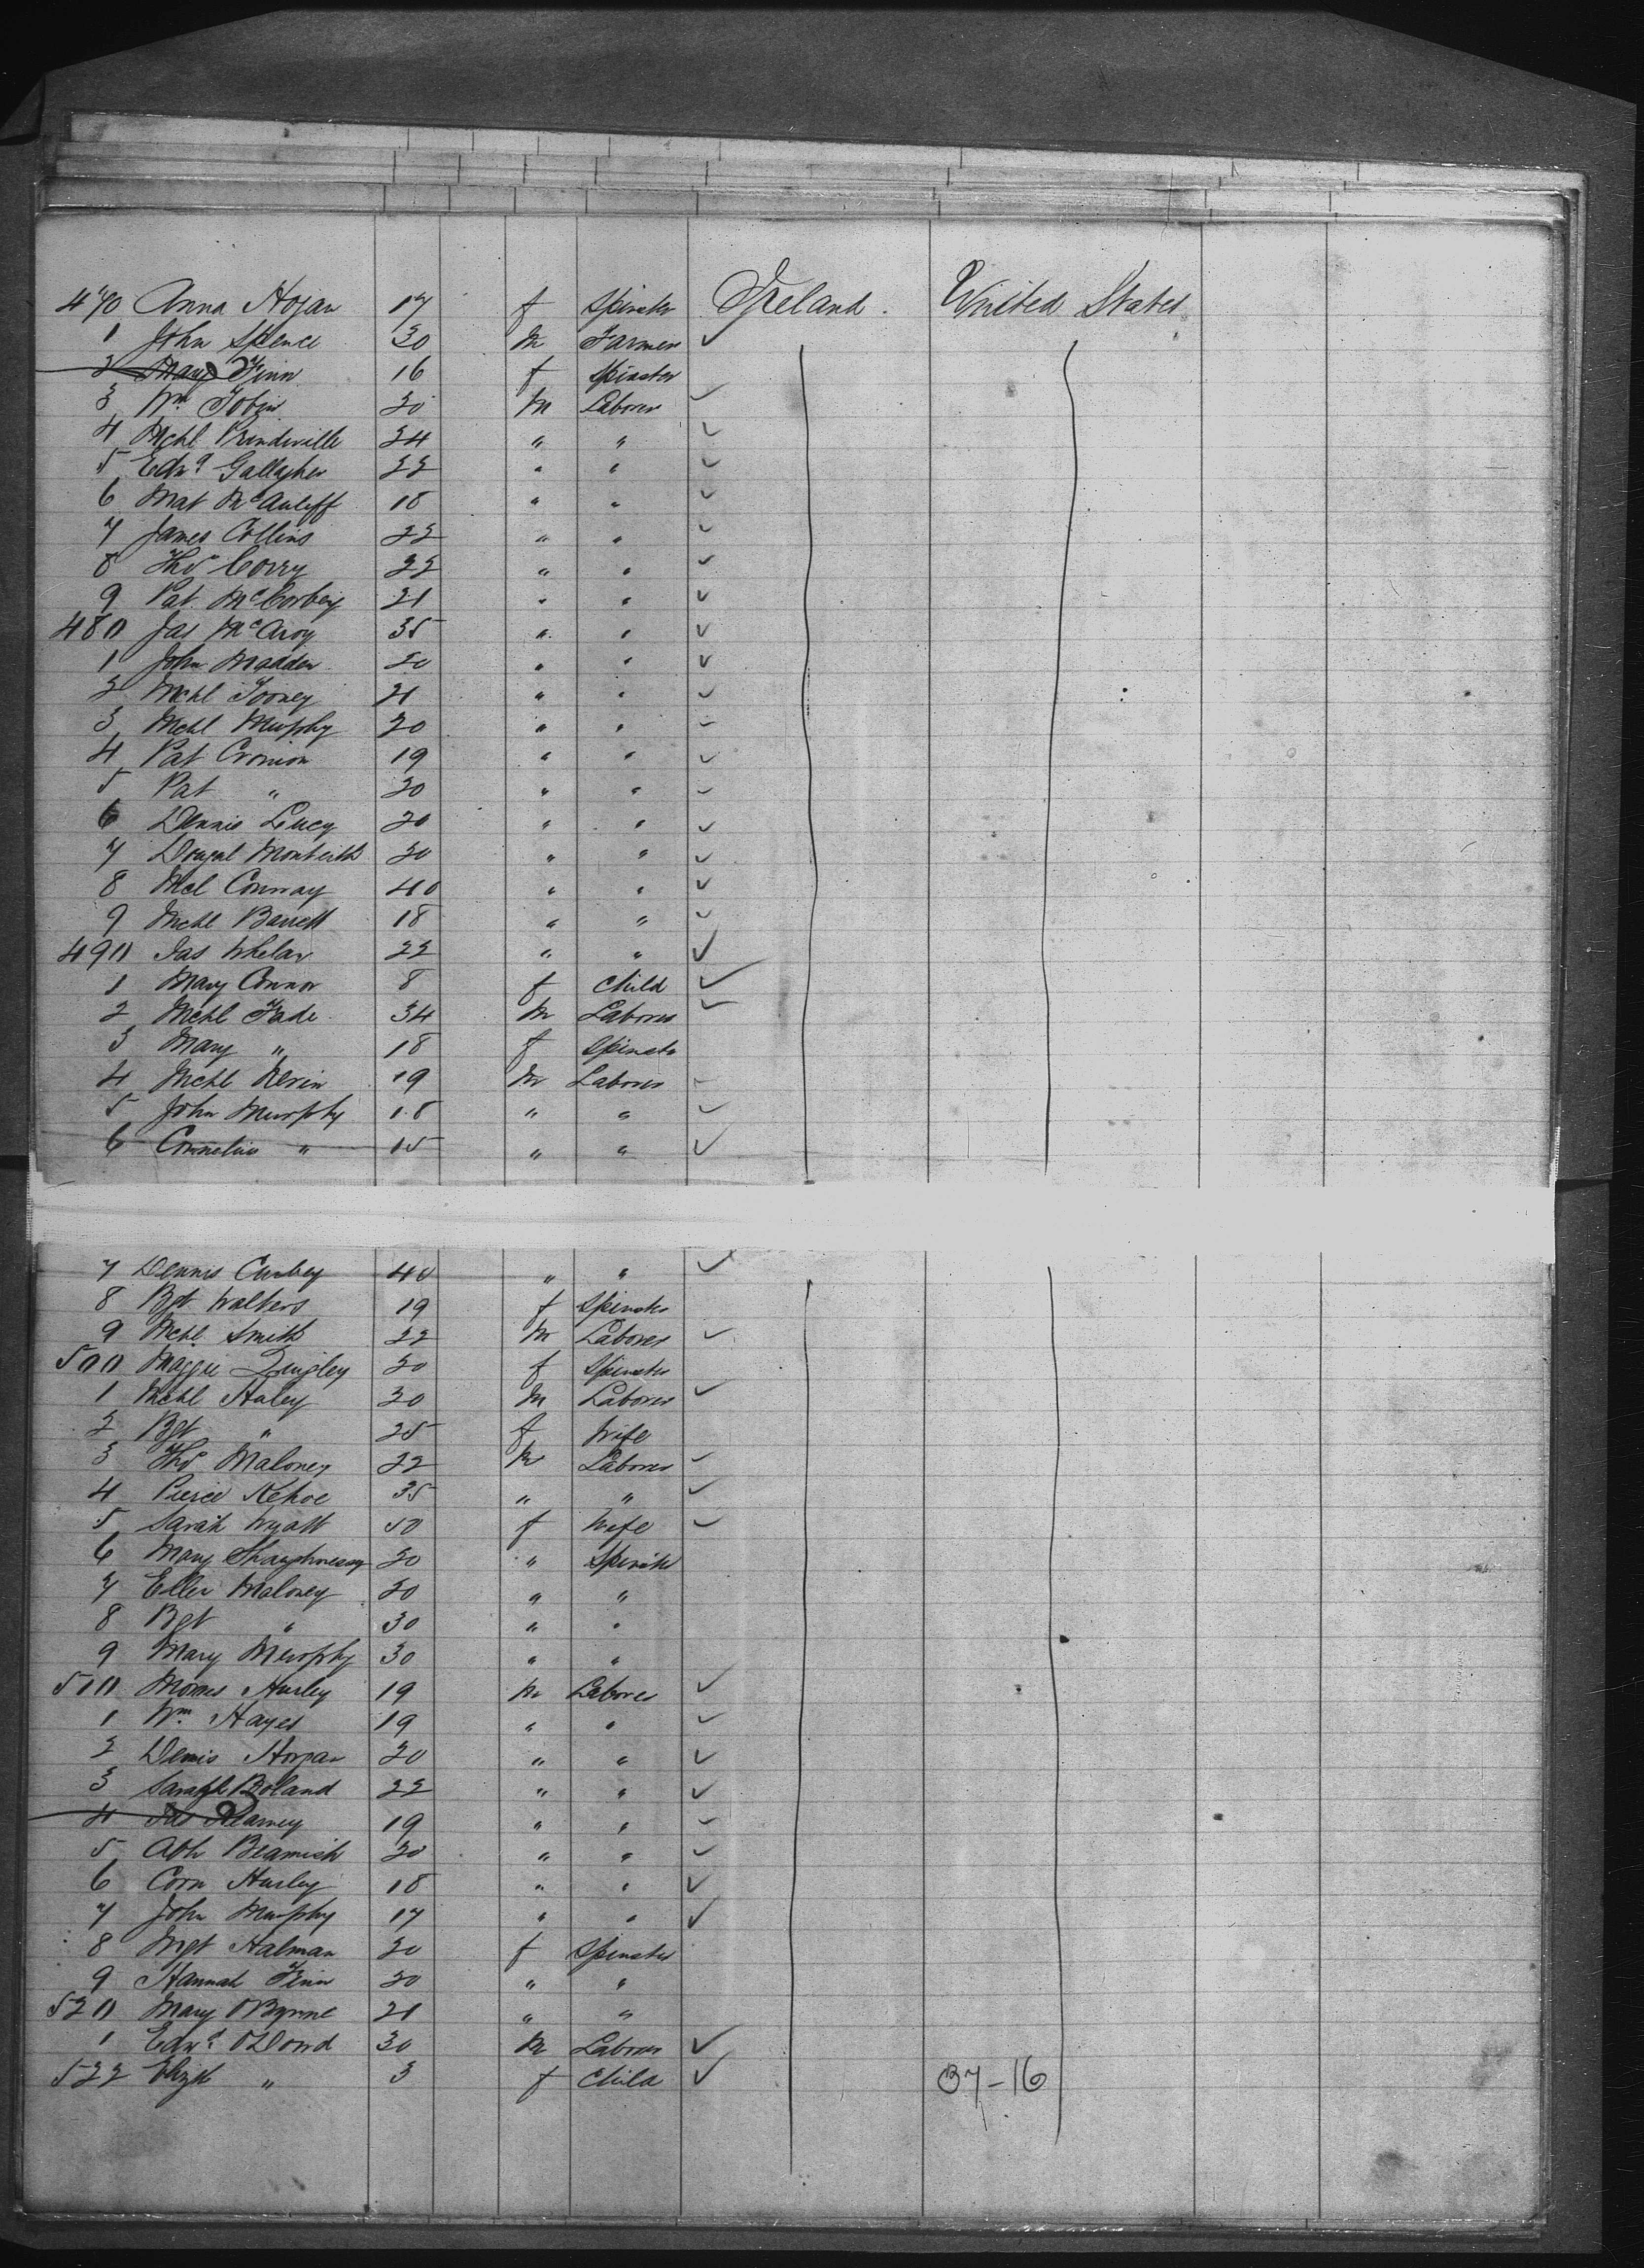 470 Anna Hogan 17 f Spinster Ireland. United States
1 John Spence 30 M Farmer
2 Mary Finn 16 f Spinster
3 Wm Tobin 20 M Laborer
4 Mchl Prindiville 24 " "
5 Edwd Gallagher 22 " "
6 Mat McAuliff 18 " "
7 James Collins 22 " "
8 Thos Corry 22 " "
9 Pat McCorbey 21 " "
480 Jas McAvoy 35 " "
1 John Madden 20 " "
2 Mchl Tooney 21 " "
3 Mchl Murphy 20 " "
4 Pat Cronion 19 " "
5 Pat " 20 " "
6 Dennis Lucy 20 " "
7 Dougal Monteith 30 " "
8 Mcl Conway 40 " "
9 Mchl Barrett 18 " "
490 Jas Whelan 22 " "
1 Mary Connor 8 f Child
2 Mchl Fade 34 M Laborer
3 Mary " 18 f Spinster
4 Mchl Nevin 19 M Laborer
5 John Murphy 18 " "
6 Cornelius " 15 " "
7 Dennis Curbey 40 " "
8 Bgt Walters 19 f Spinster
9 Mchl Smith 22 M Laborer
500 Maggie Quigley 20 f Spinster
1 Mchl Haley 20 M Laborer
2 Bgt " 25 f Wife
3 Thos Maloney 22 M Laborer
4 Pierce Kehoe 35 " "
5 Sarah Wyatt 50 f Wife
6 Mary Shaughnessy 20 " Spinster
7 Ellen Maloney 20 " "
8 Bgt " 30 " "
9 Mary Murphy 30 " "
510 Hurley 19 M Laborer
1 Wm Hayes 19 " "
2 Denis Horgan 20 " "
3 Boland 22 " "
4 Jas Kearney 19 " "
5 Abh Beamish 20 " "
6 Corn Hurley 18 " "
7 John Murphy 17 " "
8 Mgt Halman 20 f Spinster
9 Hannah Finn 20 " "
520 Mary OByrne 21 " "
1 Edwd ODowd 30 M Laborer
522 Elizth " 3 f Child 37-16